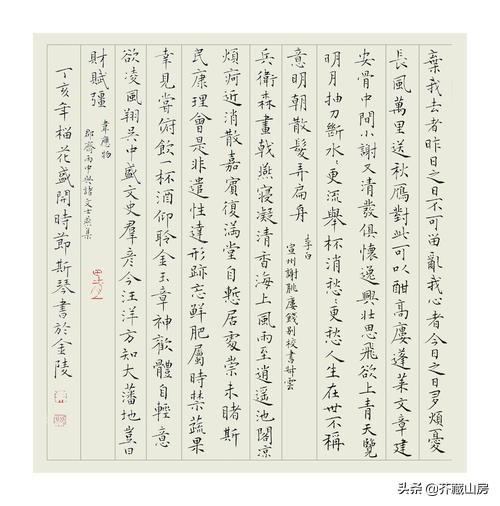 棄我去者昨日之日不可留亂我心者今日之日多煩憂
長風萬里送秋鴈對此可以酣高廔蓬萊文章建
安骨中間小謝又清發俱懷逸興壯思飛欲上青天覽
明月抽刀斷水〻更流舉杯消愁〻更愁人生在世不稱
意明朝散髮弄扁舟
李白
宣州謝朓廔餞別校書叔雲
兵衛森畫戟燕寢凝清香海上風雨至逍遥池閣涼
煩痾近消散嘉賓復滿堂自慙居處崇未睹斯
民康理會是非遣性達形跡忘鮮肥屬時禁蔬果
幸見嘗俯飲一杯酒仰聆金玉章神歡體自輕意
欲凌風翔吳中盛文史羣彥今汪洋方知大藩地豈曰
財賦彊
韋應物
郡齋雨中與諸文士燕集
丁亥年榴花盛開時節斯琴書於金陵
头条 @芥藏山房